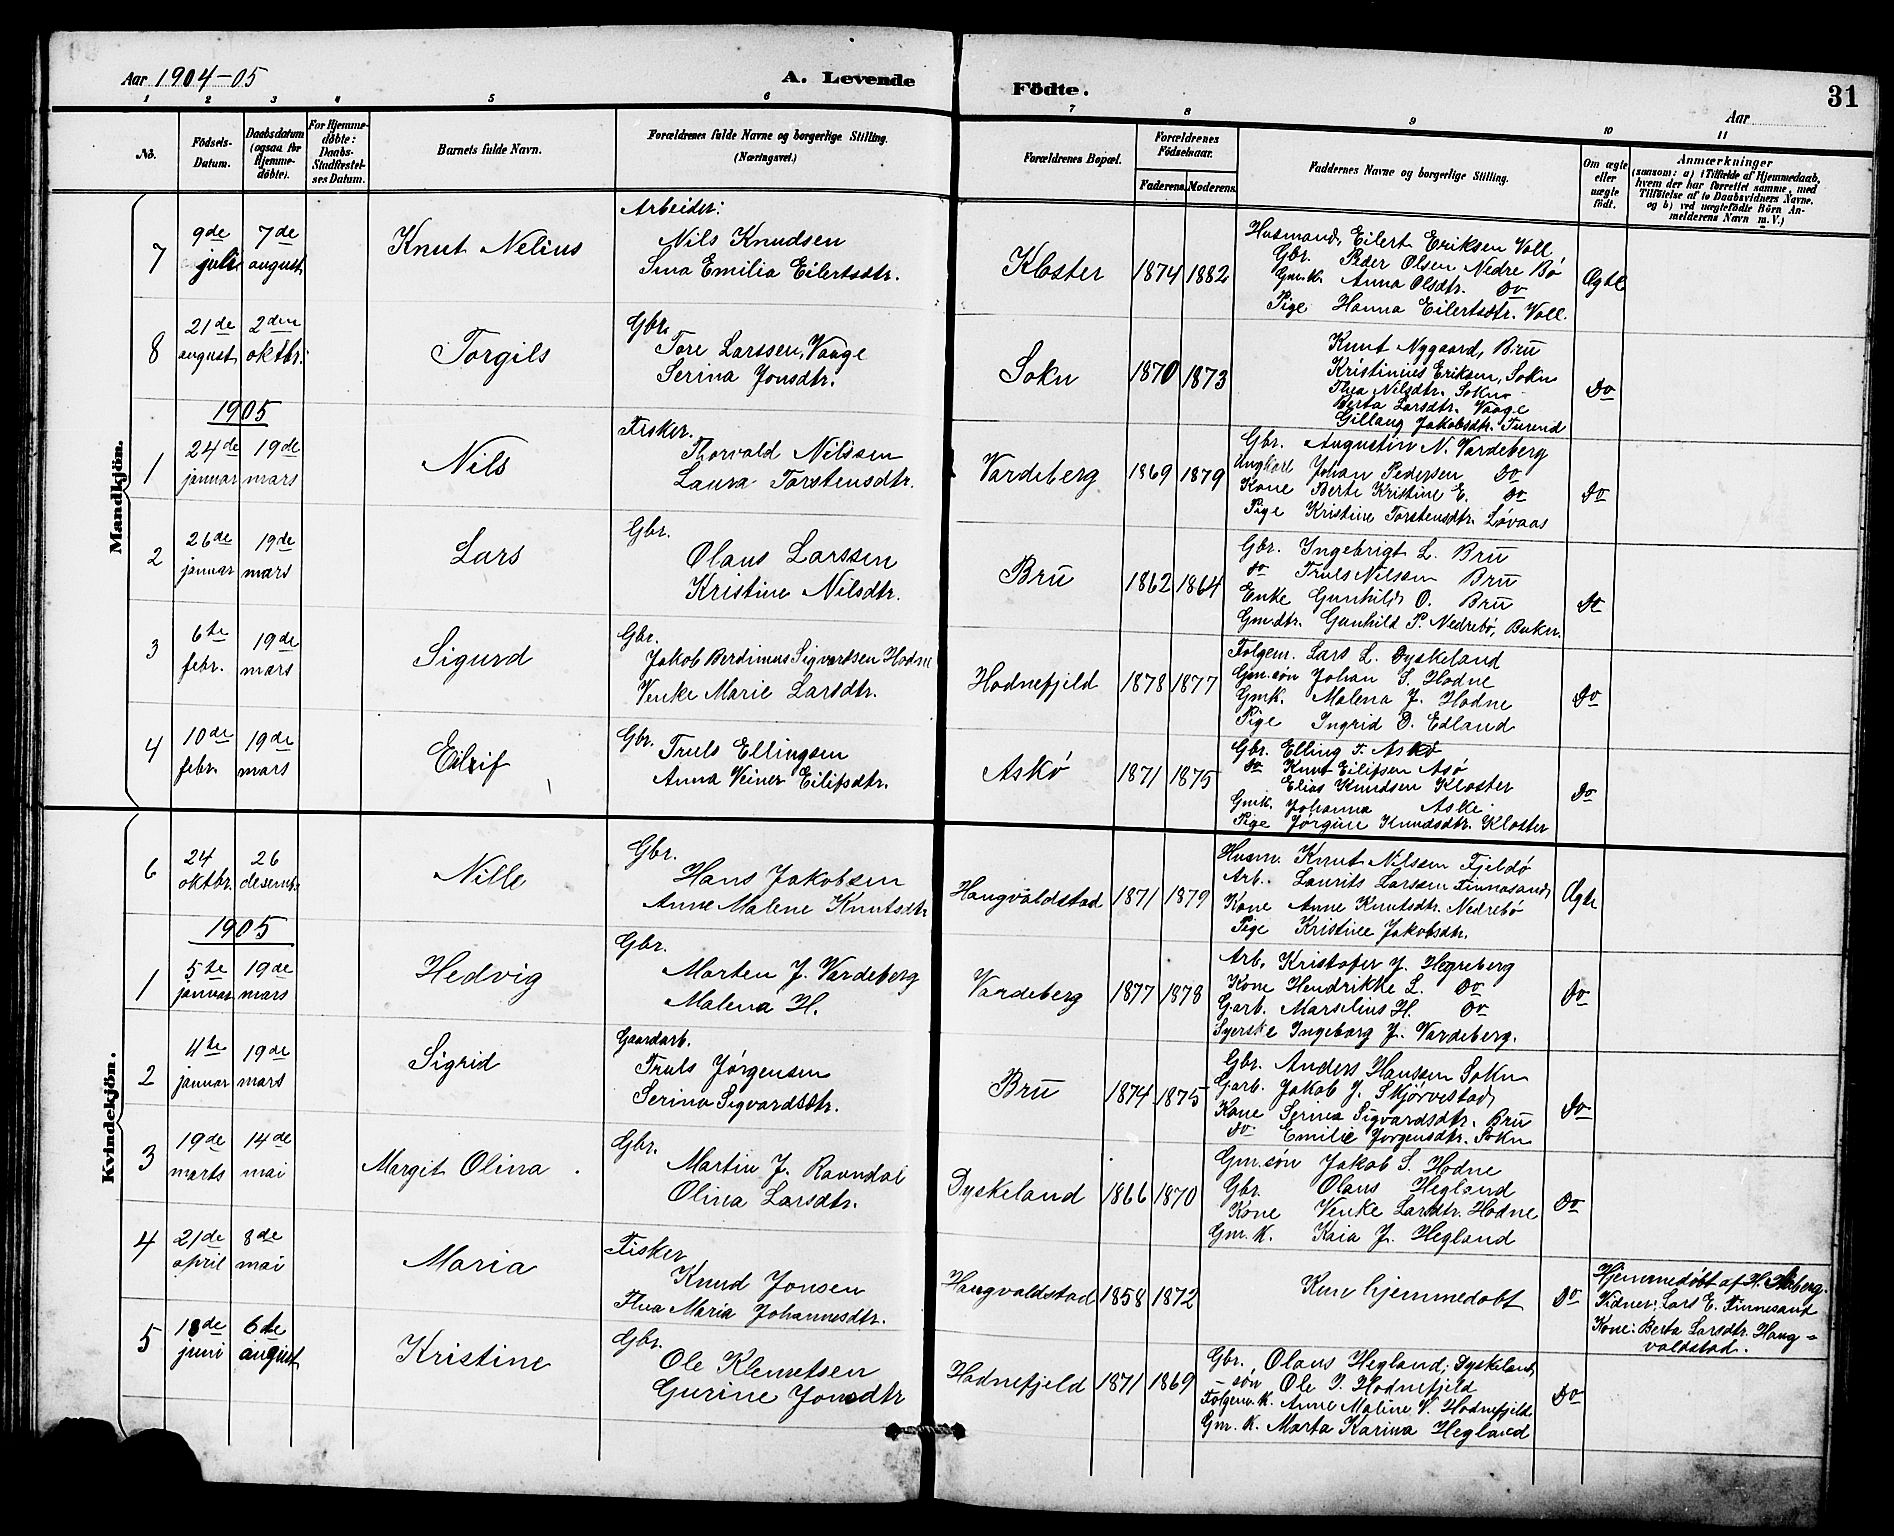 Aar 1904-05
A. Levende
Födte.
31
Aar
1 2 3 4 5 6 7 8 9 10 11
No.
Födsels-Datum.
Daabsdatum (ogsaa for Hjemme-döbte).
For Hjemme-döbte: Daabs-Stadfæstel-ses Datum.
Barnets fulde Navn.
Forældrenes fulde Navne og borgerlige Stilling. (Næringsvei.)
Forældrenes Bopæl.
Forældrenes Födselsaar.
Faderens. Moderens.
Faddernes Navne og borgerlige Stilling.
Om ægte eller uægte födt.
Anmærkninger
(saasom: a) i Tilfælde af Hjemmedaab,
hvem der har forrettet samme, med
Tilföielse af to Daabsvidners Navne.
og b) ved uægtefödte Börn An-
melderens Navn m. V.)
Mandkjön.
7
9de juli
7de august
Knut Nelius
Arbeider:
Nils Knudsen
Sina Emilia Eilertsdtr.
Kloster
1874 1882
Husmand, Eilert Eriksen Voll
Gbr. Peder Olsen, Nedre Bø
Gmk. Anna Olsdtr. do
Pige Hanna Eilertsdtr. Voll.
Ægte
8
21de august
2den oktbr.
Torgils
Gbr.
Tore Larssen, Vaage
Serina Jonsdtr.
Sokn
1870 1873
Knut Nygaard, Bru
Kristinius Eriksen, Sokn
Thea Nilsdtr. Sokn
Berta Larsdtr. Vaage
Gillaug Jakobsdtr. Furend
do
1905
1
24de januar
19de mars
Nils
Fisker.
Thorvald Nilssen
Laura Torstensdtr.
Vardeberg
1869 1879
Gbr. Augustin N. Vardeberg
Ungkarl Johan Pedersen do
Kone Berte Kristine E. do
Pige Kristine Torstensdtr. Løvaas
do
2
26de januar
19de mars
Lars
Gbr.
Olaus Larssen
Kristine Nilsdtr.
Bru
1862 1864
Gbr. Ingebrigt L. Bru
do Truls Nilssen Bru
Enke Gunhild O. Bru
Gmdtr. Gunhild P. Nedrebø, Bukn.
do
3
6te febr.
19de mars
Sigurd
Gbr.
Jakob Berdinus Sigvartsen Hodne
Venke Marie Larsdtr.
Hodnefjeld
1878 1877
Folgem. Lars L. Dyskeland
Gm.søn Johan S. Hodne
Gmk. Malena J. Hodne
Pige Ingrid O. Edland
do
4
10de febr.
19de mars
Eilif
Gbr. Truls Ellingsen
Anna Veiner Eilifsdtr.
Askø
1871 1875
Gbr. Elling T. Askø
do Knut Eilifsen Asø
Elias Knudsen Kloster
Gmk. Johanna Aske
Pige Jørgine Knudsdtr. Kloster
do
Kvindekjön.
6
24 oktbr.
26 desembr.
Nille
Gbr.
Hans Jakobsen
Anne Malene Knutsdtr
Haugvaldstad
1871 1879
Husm. Knut Nilssen Fjeldø
Arb. Laurits Larssen Finnasand,
Kone Anne Knutsdtr. Nedrebø
Pige Kristine Jakobsdtr.
Ægte
1905
1
5te januar
19de mars
Hedvig
Gbr.
Morten J. Vardeberg
Malena H.
Vardeberg
1877 1878
Arb. Kristofer J. Hegreberg
Kone Hendrikke L. do
Garb. Marselius H. do
Syerske Ingeborg J. Vardeberg.
do
2
4te januar
19de mars
Sigrid
Gaardarb.
Truls Jørgensen
Serina Sigvardsdtr.
Bru
1874 1875
Gbr. Anders Hanssen Sokn
Garb. Jakob J. Skjørvestad,
Kone Serina Sigvardsdtr. Bru
do Emilie Jørgensdtr. Sokn
do
3
19de marts
14de mai
Margit Olina
Gbr.
Martin J. Ravndal
Olina Larsdtr.
Dyskeland
1866 1870
Gm.søn Jakob S. Hodne
Gbr. Olaus Hegland
Kone Venke Larsdtr. Hodne
Gm.K. Kaia J. Hegland
do
4
21de april
8de mai
Maria
Fisker
Knud Jonsen
Thea Maria Johannesdtr.
Haugvaldstad
1858 1872
Kun hjemmedøbt
do
Hjemmedøbt af H.
Vidner: Lars E. Finnesant
Kone: Berta Larsdtr. Haug-
valdstad.
5
18de juni
6te august
Kristine
Gbr.
Ole Klemetsen
Gurine Jonsdtr
Hodnefjeld
1871 1869
Gbr. Olaus Hegland, Dyskeland,
- søn Ole J. Hodnefjeld
Folgem. K. Anne Maline V. Hodnefjeld
Gm. K. Marta Karina Hegland
do